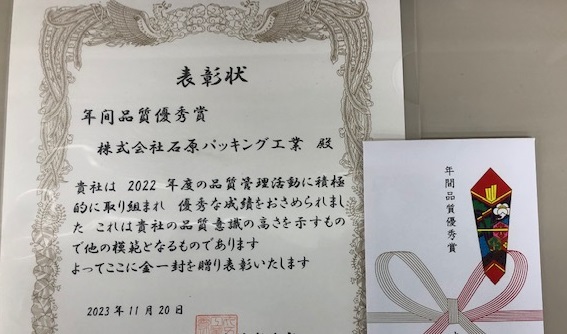 表彰状
年間品質優秀賞
株式会社石原パッキング工業 殿
貴社は 2022 年度の品質管理活動に積極
的に取り組まれ 優秀な成績をおさめられまし
た これは貴社の品質意識の高さを示すもの
で他の模範となるものであります
よってここに金一封を贈り表彰いたします
2023 年 11 月 20 日
年間品質優秀賞